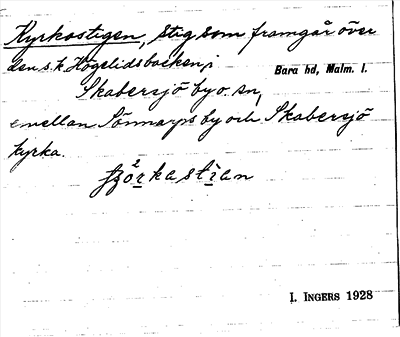 Kyrkostigen, stig som framgår över
den s.k. Högelidsbacken i
Bara hd, Malm. l.
Skabersjö by o. sn,
emellan Sönnarps by och Skabersjö
kyrka.
2
I. INGERS 1928